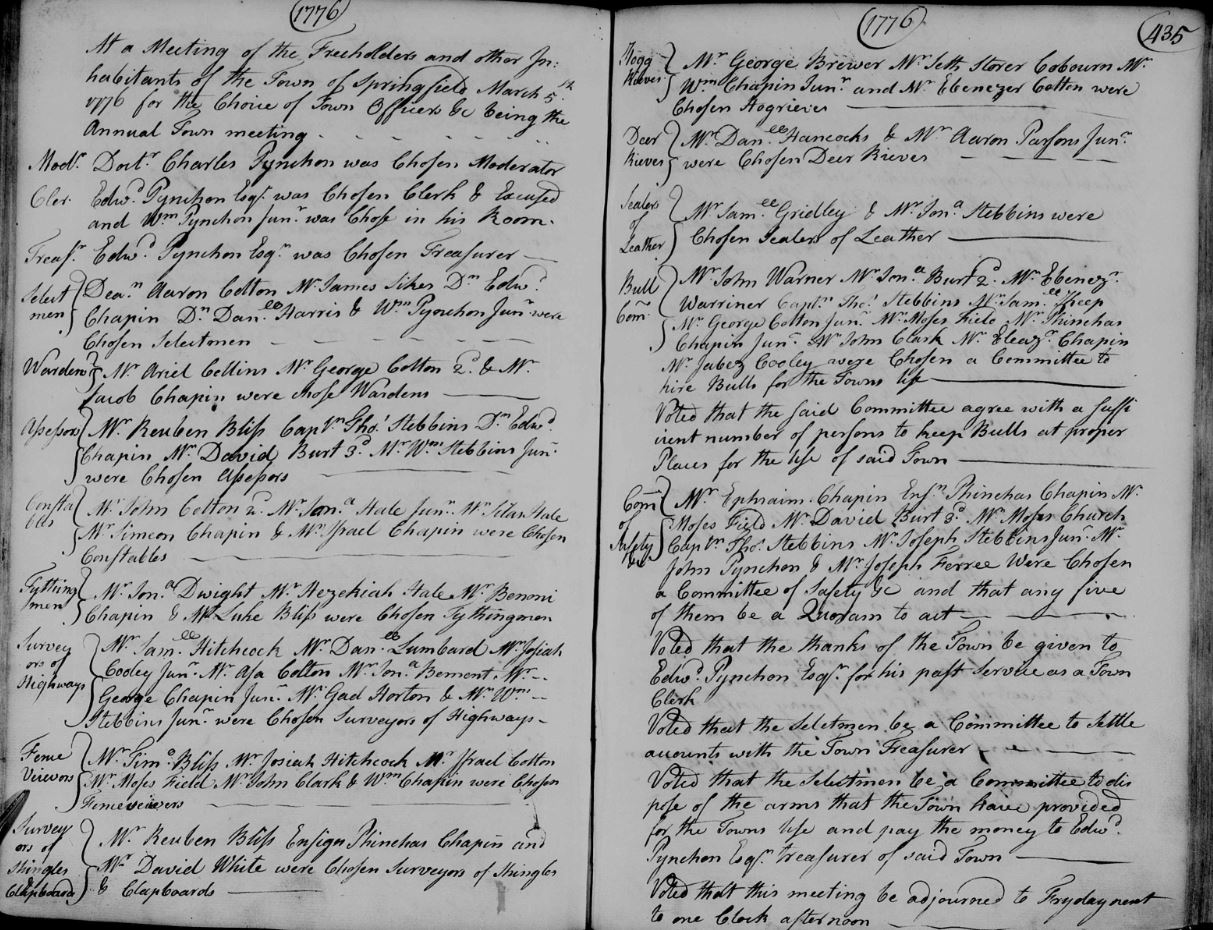 1776
At a Meeting of the Freeholders and other In:
habitants of the Town of Springfield March 5th
1776 for the Choice of Town Officers &c being the
Annual Town meeting
Modr. Doctr Charles Pynchon was Chosen Moderator
Cler. Edwd. Pynchon Esqr. was Chosen Clerk & Excused
and Wm Pynchon Junr. was Chose in his Room.
Treasr. Edwd. Pynchon Esqr. was Chosen Treasurer
Select Deacn Aaron Colton Mr. James Sikes Dn Edwd.
men Chapin Dn Danee Harris & Wm Pynchon Junr. were
Chosen Selectmen
Wardens Mr. Ariel Collins Mr George Colton 2d. & Mr.
Jacob Chapin were chose Wardens
Assessors Mr. Reuben Bliss Captn Tho. Stebbins Dn Edwd.
Chapin Mr. David Burt 3d. Mr Wm Stebbins Junr.
were Chosen Assessors
Consta Mr. John Colton 2d. Mr Jona Hale Junr. Mr. Silas Hale
bles Mr. Simeon Chapin & Mr. Israel Chapin were Chosen
Constables
Tything Mr. Jona Dwight Mr Hezekiah Hale Mr Benoni
men Chapin & Mr Luke Bliss were Chosen Tythingmen
Survey Mr. Samee Hitchcock Mr. Danee Lumbard Mr Josiah
ors of Cooley Junr. Mr. Asa Colton Mr Jona Bement Mr.
Highways George Chapin Junr. Mr Gad Horton & Mr. Wm
Stebbins Junr. were Chosen Surveyors of Highways
Fence Mr. Timo Bliss Mr. Josiah Hitchcock Mr Israel Colton
Viewors Mr. Moses Field Mr John Clark & Wm Chapin were Chosen
Fenceveiwers
Survey Mr Reuben Bliss Ensign Phinehas Chapin and
ors of
Shingles Mr. David White were Chosen Surveyors of Shingles
Clapboards & Clapboards
1776
435
Hogg Mr George Brewer Mr. Seth Storer Cobourn Mr.
Rieves Wm Chapin Junr. and Mr. Ebenezer Colton were
Chosen Hogrieves
Deer Mr. Danee Hancocks & Mr Aaron Parsons Junr.
Rieves were Chosen Deer Rieves
Sealers
of Mr Samee Gridley & Mr Jona Stebbins were
Leather Chosen Sealers of Leather
Bull Mr John Warner Mr Jona Burt 2d. Mr. Ebenezr.
Com Warriner Captn Tho. Stebbins Mr Samee Keep
Mr. George Colton Junr. Mr Moses Field Mr. Phinehas
Chapin Junr. Mr John Clark Mr. Eleazr. Chapin
Mr. Jabez Cooley were Chosen a Committee to
hire Bulls for the Towns use
Voted that the said Committee agree with a suffi
cient number of persons to keep Bulls at proper
Places for the use of said Town
Com Mr Ephraim Chapin Ensn. Phinehas Chapin Mr.
of Moses Field Mr. David Burt 3d. Mr Moses Church
Safety &c Captn Tho. Stebbins Mr Joseph Stebbins Junr. Mr.
John Pynchon & Mr Joseph Ferree Were Chosen
a Committee of Safety &c and that any five
of them be a Quoram to act
Voted that the thanks of the Town be given to
Edwd. Pynchon Esqr. for his past Service as a Town
Clerk
Voted that the Selectmen be a Committee to Settle
accounts with the Town Treasurer
Voted that the Selectmen be a Committee to dis
pose of the arms that the Town have provided
for the Towns use and pay the money to Edwd.
Pynchon Esqr. treasurer of said Town
Voted that this meeting be adjourned to Fryday next
to one Clock afternoon